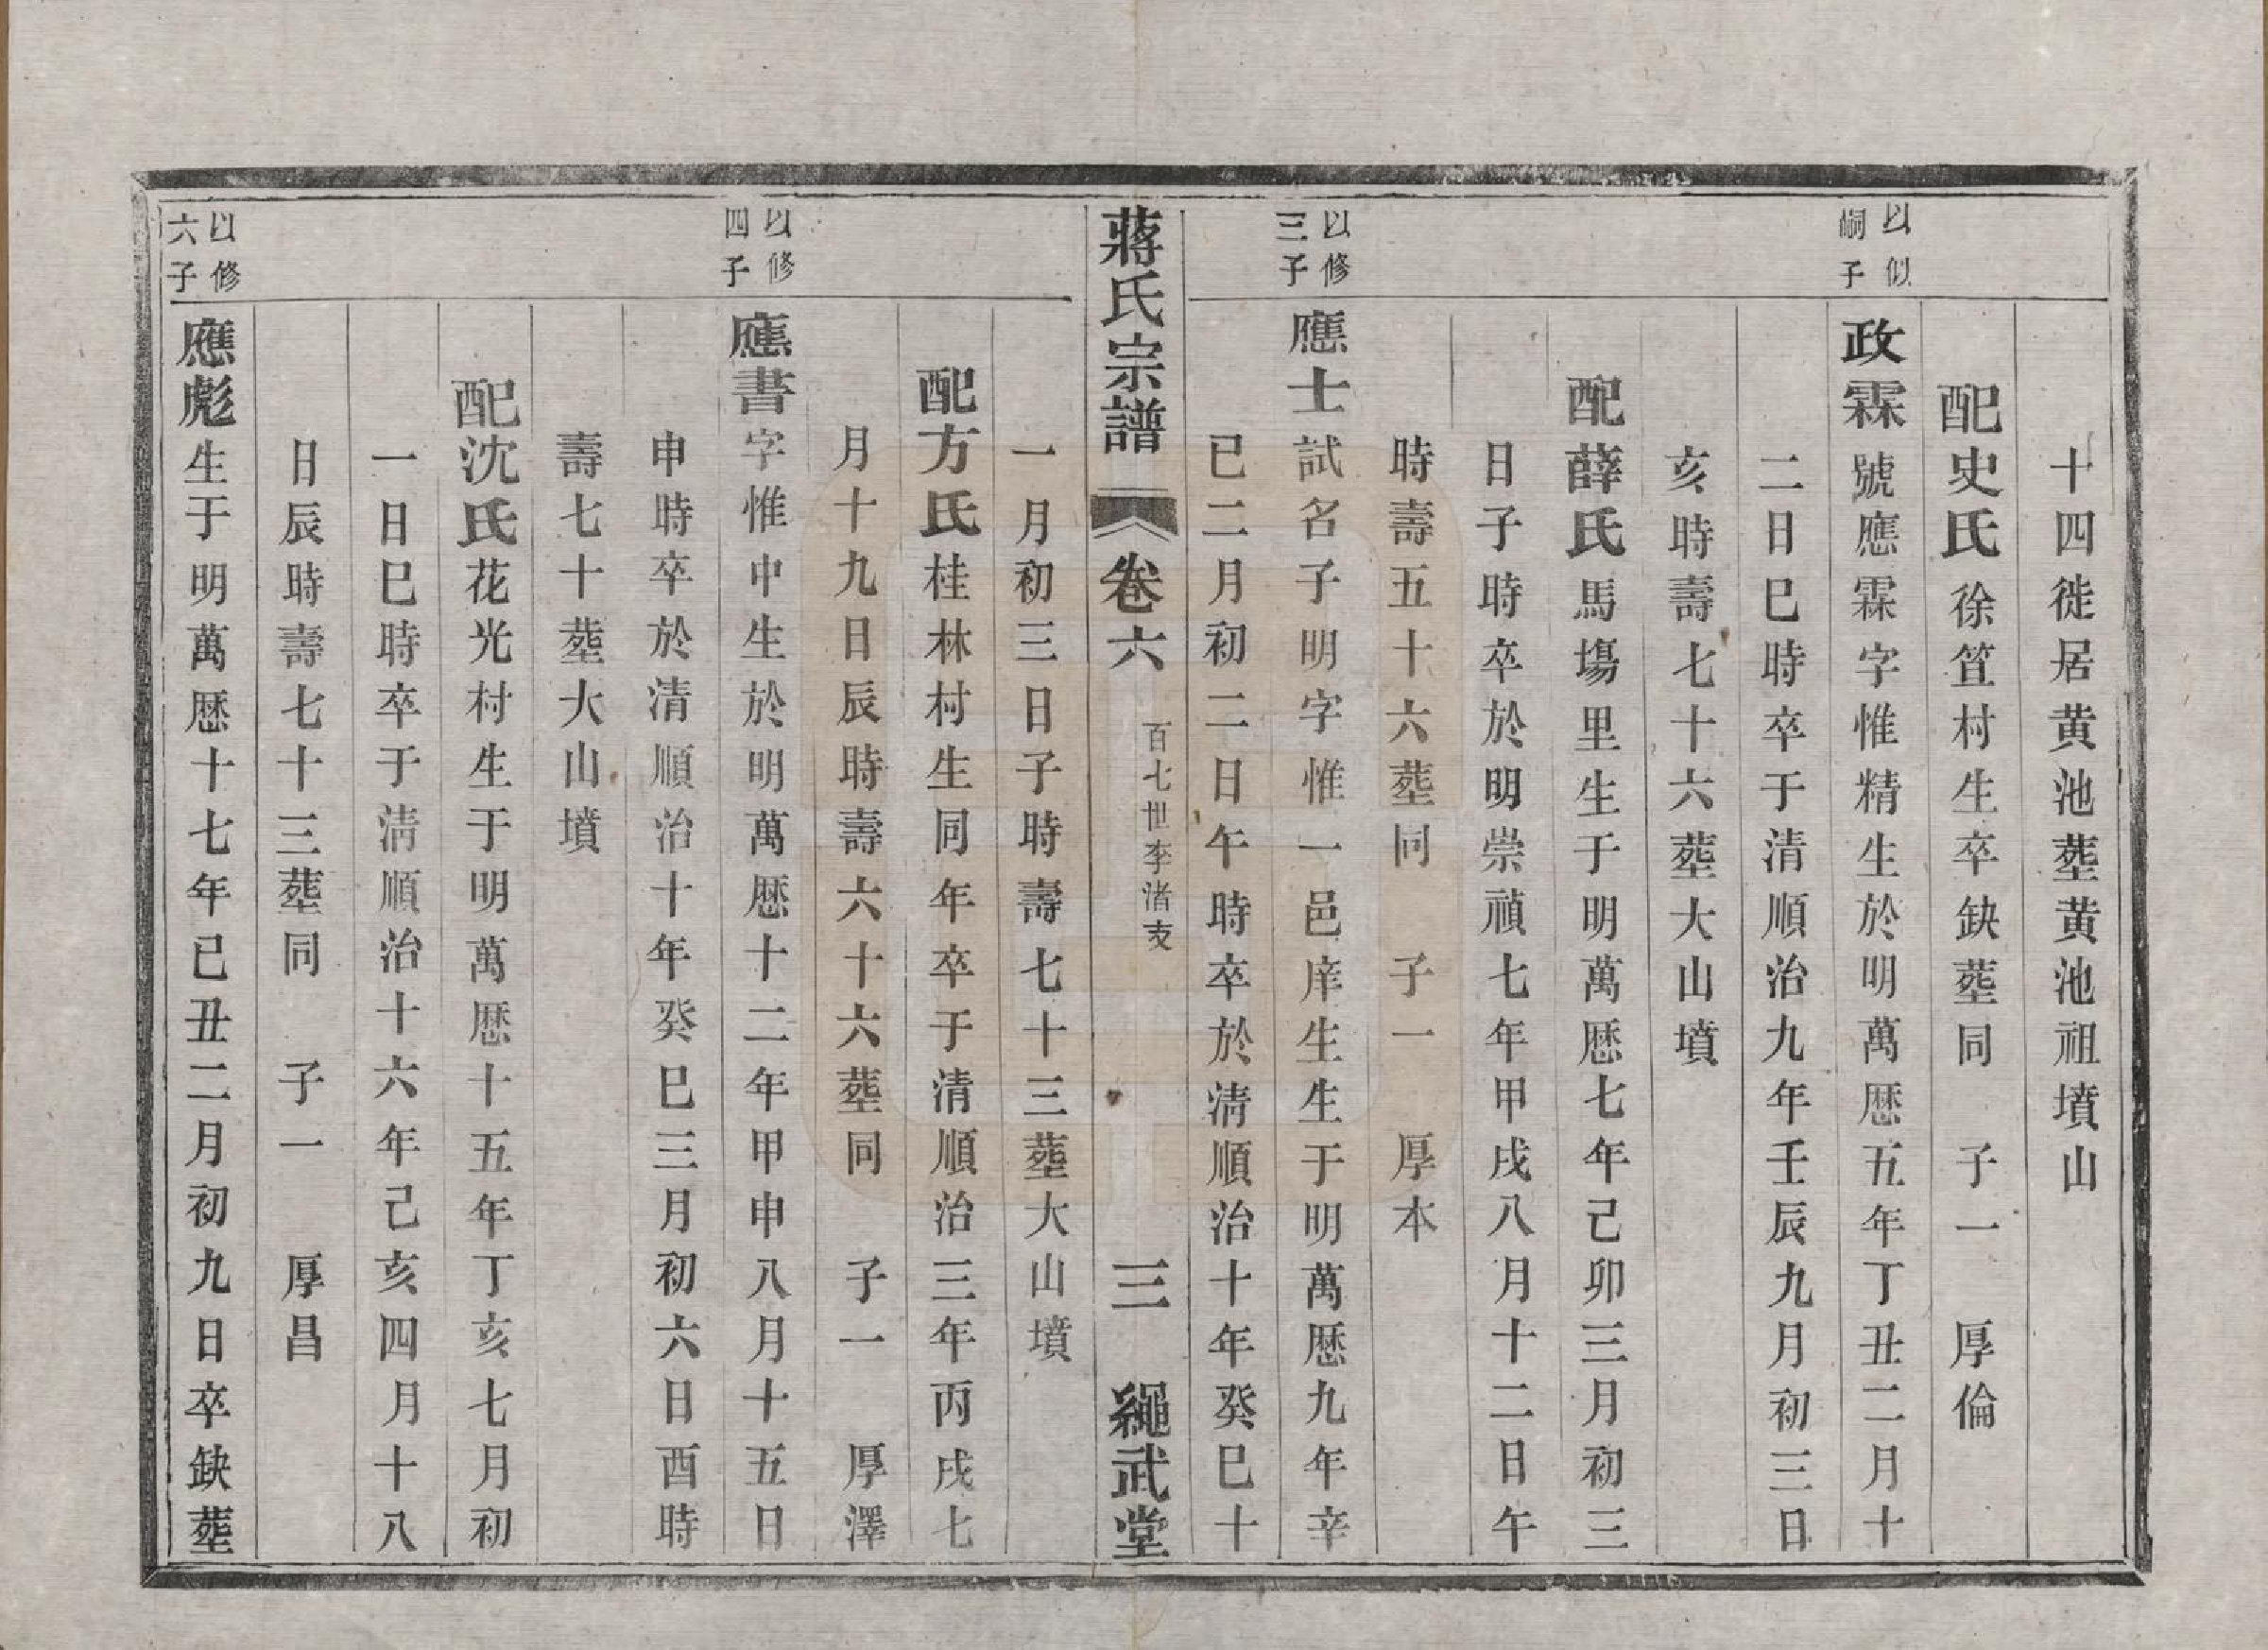 十四徙居黄池塟黄池祖墳山
配史氏徐笪村生卒缺塟同　子一　厚倫
以似嗣子
政霖號應霖字惟精生於明萬厯五年丁丑二月十
二日巳時卒于清順治九年壬辰九月初三日
亥時壽七十六塟大山墳
配薛氏馬塲里生于明萬厯七年己卯三月初三
日子時卒於明崇禎七年甲戌八月十二日午
時壽五十六塟同　子一　厚本
以修三子
應士試名子明字惟一邑庠生生于明萬厯九年辛
巳二月初二日午時卒於清順治十年癸巳十
蔣氏宗譜　卷六　百七世李渚支　三　繩武堂
一月初三日子時壽七十三塟大山墳
配方氏桂林村生同年卒于清順治三年丙戌七
月十九日辰時壽六十六塟同　子一　厚澤
以修四子
應書字惟中生於明萬厯十二年甲申八月十五日
申時卒於清順治十年癸巳三月初六日酉時
壽七十塟大山墳
配沈氏花光村生于明萬厯十五年丁亥七月初
一日巳時卒于清順治十六年己亥四月十八
日辰時壽七十三塟同　子一　厚昌
以修六子
應彪生于明萬厯十七年己丑二月初九日卒缺塟